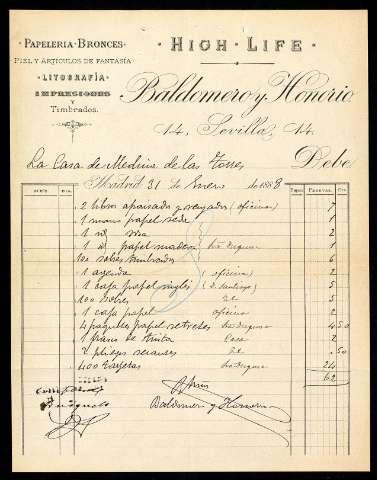 PAPELERIA-BRONCES
PIEL Y ARTICULOS DE FANTASIA
LITOGRAFÍA
IMPRESIONES
Y
Timbrados.
HIGH-LIFE
Baldomero y Honorio
14, Sevilla, 14.
La Casa de Medina de las Torres Debe
Madrid 31 de Enero de 1888
2 libros apaisado y rayados (oficina) 7
1 mano papel seda 1
1 id
1 id papel madera 1
100 sobres timbrados 6
1 agenda (oficina) 2
1 caja papel inglés (D. Santiago) 5
100 sobres Id. 5
1 caja papel oficina 2
4 paquetes papel retretes 4 50
1 frasco de tinta Casa 2
2 pliegos secantes Id. 50
400 tarjetas 24
62
Conforme
Recibí
Baldomero y Honorio